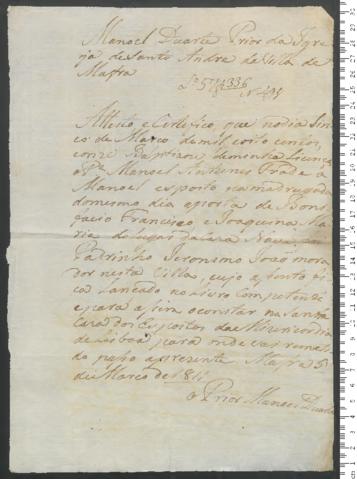 Manoel Duarte Prior da Igre
ja de Santo Andre da Villa de
Mafra
Attesto e Certifico, que no dia sin
co de Março de mil e oito centos,
e onze Baptizou de minha licença
o P.e Manoel Antunes Frade a
Manoel exposto na madrugada
do mesmo dia a porta de Boni
facio Francisco e Joaquina Ma
ria do lugar da
Padrinho Jeronimo João mora
dor nesta Villa, cujo assento fi
ca lançado no livro Competente
e para assim o constar na Santa
Casa dos Expostos da Mizericordia
de Lisboa para onde vai remeti
do passo a prezente Mafra 5
de Março de 1811
o Prior Manoel Duarte